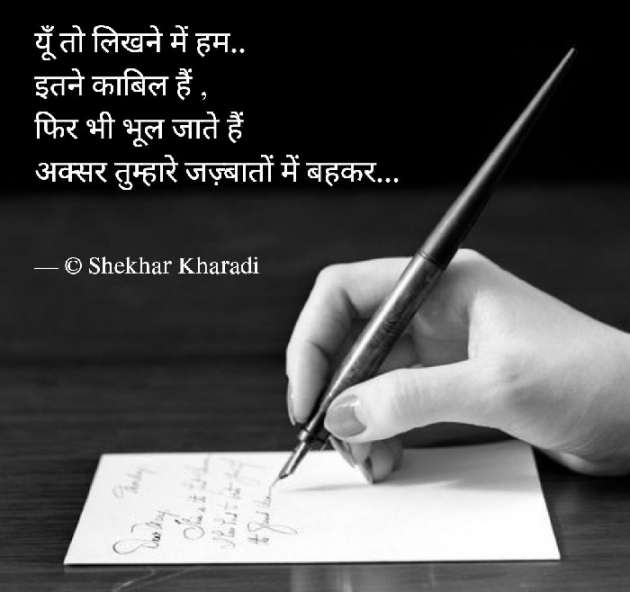 यूँ तो लिखने में हम..
इतने काबिल हैं ,
फिर भी भूल जाते हैं
अक्सर तुम्हारे जज़्बातों में बहकर...
— © Shekhar Kharadi